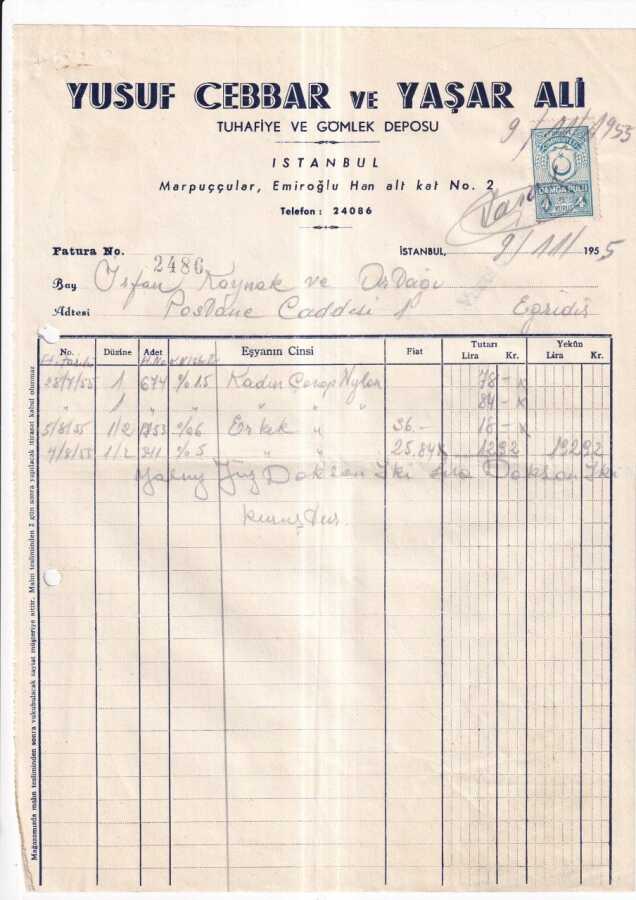 YUSUF CEBBAR VE YAŞAR ALİ
TUHAFİYE VE GÖMLEK DEPOSU
ISTANBUL
Marpuççular, Emiroğlu Han alt kat No. 2
Telefon: 24086
9/11/1955
DAMGA PULU
4
Fatura No. 2486
İSTANBUL, 9/11/1955
Bay İrfan Kaynak ve
Adresi Postane Caddesi Eğridir
No. Düzine Adet Eşyanın Cinsi Fiat Tutarı Lira Kr. Yekün Lira Kr.
1 674 %15 Kadın Çorap Nylon 78 -
" 1 " " " " " 84 -
5/8/55 1/2 %06 Erkek " 36.- 18 -
1/2 % 5 " " 25.84 12 92 192 92
Yalnız Yüz Doksan İki Lira Doksan İki
kuruştur
Mağazamızda malın tesliminden sonra vukubulacak zayiat müşteriye aittir. Malın tesliminden 2 gün sonra yapılacak itirazat kabul olunmaz